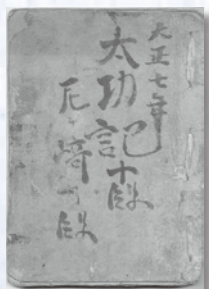 大正七年
太功記十段
尼ヶ崎の段